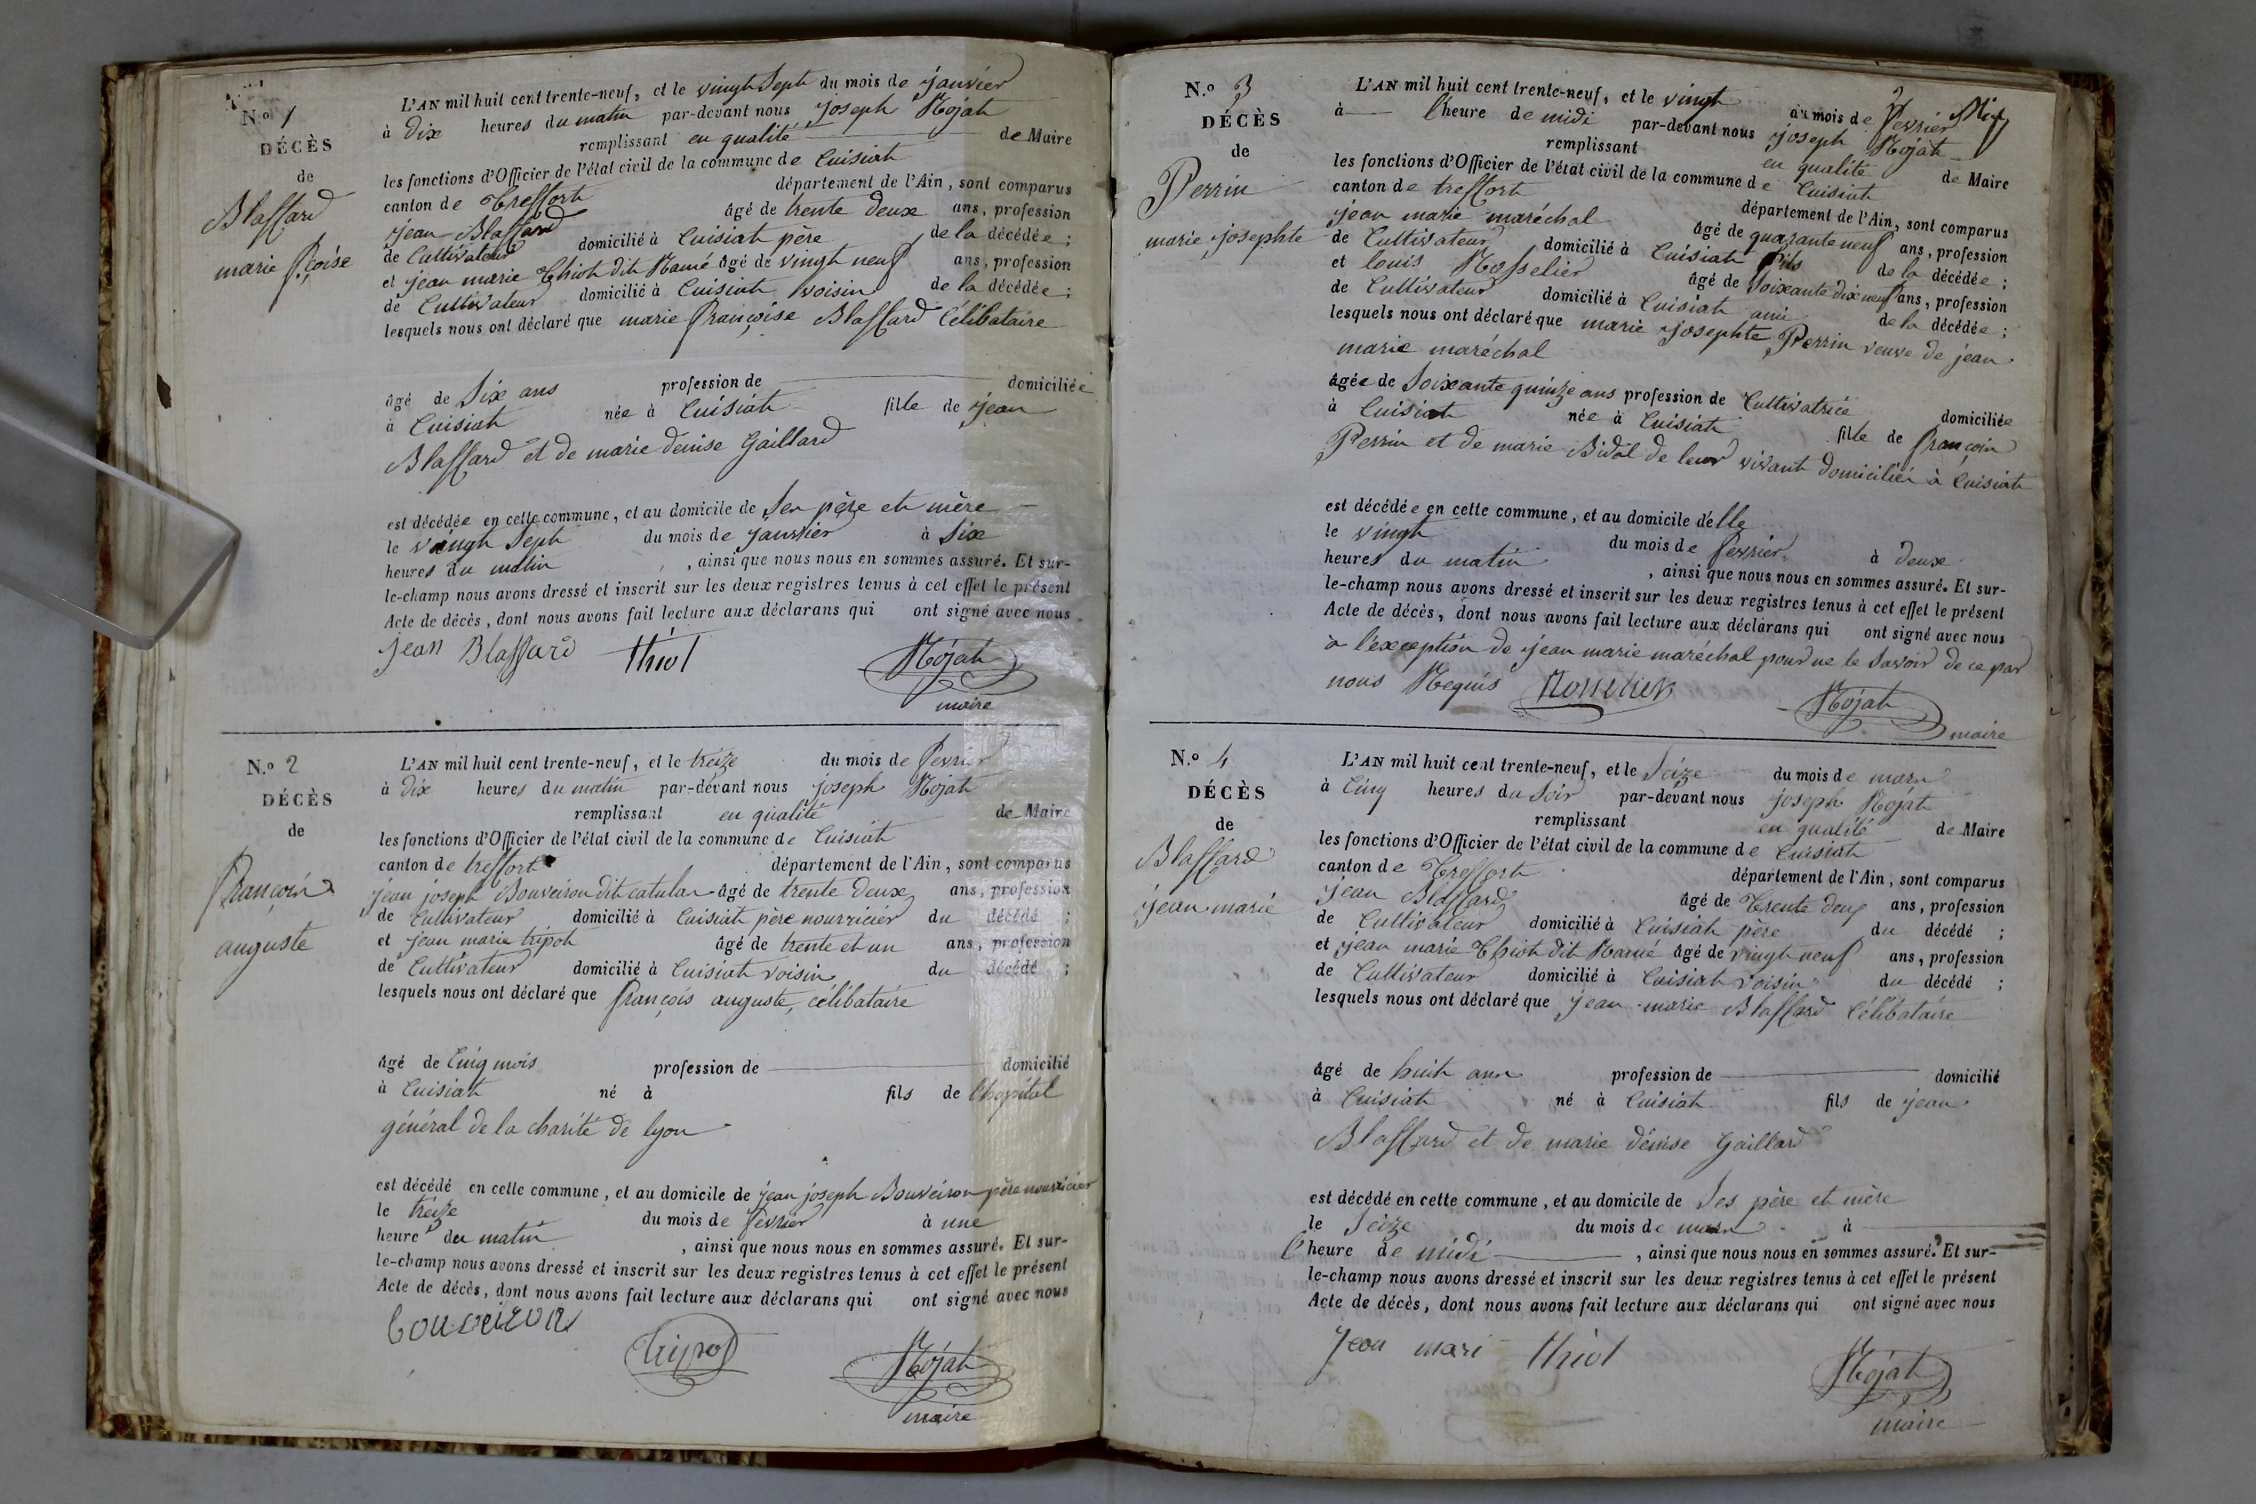 N.o 1
DÉCÈS
de
Blassard
marie fçoise
L'AN mil huit cent trente-neuf, et le vingt sept du mois de janvier
à dix heures du matin par-devant nous joseph Rojat
remplissant en qualité de Maire
les fonctions d'Officier de l'état civil de la commune de Cuisiat
canton de Treffort département de l'Ain, sont comparus
jean Blassard âgé de trente deux ans, profession
de Cultivateur domicilié à Cuisiat père de la décédée;
et jean marie Thiot dit Ramé âgé de vingt neuf ans, profession
de Cultivateur domicilié à Cuisiat voisin de la décédée;
lesquels nous ont déclaré que marie françoise Blassard Célibataire
âgé de Six ans profession de domiciliée
à Cuisiat née à Cuisiat fille de jean
Blassard et de marie denise Gaillard
est décédée en cette commune, et au domicile de Ses père et mère
le vingt Sept du mois de janvier à Six
heures du matin, ainsi que nous nous en sommes assuré. Et sur-
le-champ nous avons dressé et inscrit sur les deux registres tenus à cet effet le présent
Acte de décès, dont nous avons fait lecture aux déclarans qui ont signé avec nous
jean Blassard thiot Rojat
maire
N.o 2
DÉCÈS
de
françois
auguste
L'AN mil huit cent trente-neuf, et le treize du mois de fevrier
à dix heures du matin par-devant nous joseph Rojat
remplissant en qualité de Maire
les fonctions d'Officier de l'état civil de la commune de Cuisiat
canton de treffort département de l'Ain, sont comparus
jean joseph Bouveiron dit catulan âgé de trente deux ans, profession
de Cultivateur domicilié à Cuisiat père nourricier du décédé;
et jean marie tripot âgé de trente et un ans, profession
de Cultivateur domicilié à Cuisiat voisin du décédé;
lesquels nous ont déclaré que françois auguste, célibataire
âgé de Cinq mois profession de domicilié
à Cuisiat né à fils de l'hopital
général de la charité de lyon
est décédé en cette commune, et au domicile de jean joseph Bouveiron père nourricier
le treize du mois de fevrier à une
heure du matin, ainsi que nous nous en sommes assuré. Et sur-
le-champ nous avons dressé et inscrit sur les deux registres tenus à cet effet le présent
Acte de décès, dont nous avons fait lecture aux déclarans qui ont signé avec nous
bouveiron tripot Rojat
maire
N.o 3
DÉCÈS
de
Perrin
marie josephte
L'AN mil huit cent trente-neuf, et le vingt du mois de fevrier
à l'heure de midi par-devant nous joseph Rojat
remplissant en qualité de Maire
les fonctions d'Officier de l'état civil de la commune de Cuisiat
canton de treffort département de l'Ain, sont comparus
jean marie maréchal âgé de quarante neuf ans, profession
de Cultivateur domicilié à Cuisiat fils de la décédée;
et louis Rosselier âgé de Soixante dix neuf ans, profession
de Cultivateur domicilié à Cuisiat ami de la décédée;
lesquels nous ont déclaré que marie josephte Perrin veuve de jean
marie maréchal
âgée de Soixante quinze ans profession de Cultivatrice domiciliée
à Cuisiat née à Cuisiat fille de françois
Perrin et de marie Bidal de leur vivant domiciliés à Cuisiat
est décédée en cette commune, et au domicile d'elle
le vingt du mois de fevrier à deux
heures du matin, ainsi que nous nous en sommes assuré. Et sur-
le-champ nous avons dressé et inscrit sur les deux registres tenus à cet effet le présent
Acte de décès, dont nous avons fait lecture aux déclarans qui ont signé avec nous
à l'exception de jean marie maréchal pour ne le Savoir de ce par
nous Requis Rosselier Rojat
maire
N.o 4
DÉCÈS
de
Blassard
jean marie
L'AN mil huit cent trente-neuf, et le Seize du mois de mars
à Cinq heures du Soir par-devant nous joseph Rojat
remplissant en qualité de Maire
les fonctions d'Officier de l'état civil de la commune de Cuisiat
canton de Treffort département de l'Ain, sont comparus
jean Blassard âgé de Trente deux ans, profession
de Cultivateur domicilié à Cuisiat père du décédé;
et jean marie Thiot dit Ramé âgé de vingt neuf ans, profession
de Cultivateur domicilié à Cuisiat voisin du décédé;
lesquels nous ont déclaré que jean marie Blassard Célibataire
âgé de huit ans profession de domicilié
à Cuisiat né à Cuisiat fils de jean
Blassard et de marie denise Gaillard
est décédé en cette commune, et au domicile de Ses père et mère
le Seize du mois de mars à
l'heure de midi, ainsi que nous nous en sommes assuré. Et sur-
le-champ nous avons dressé et inscrit sur les deux registres tenus à cet effet le présent
Acte de décès, dont nous avons fait lecture aux déclarans qui ont signé avec nous
jean mari thiot Rojat
maire